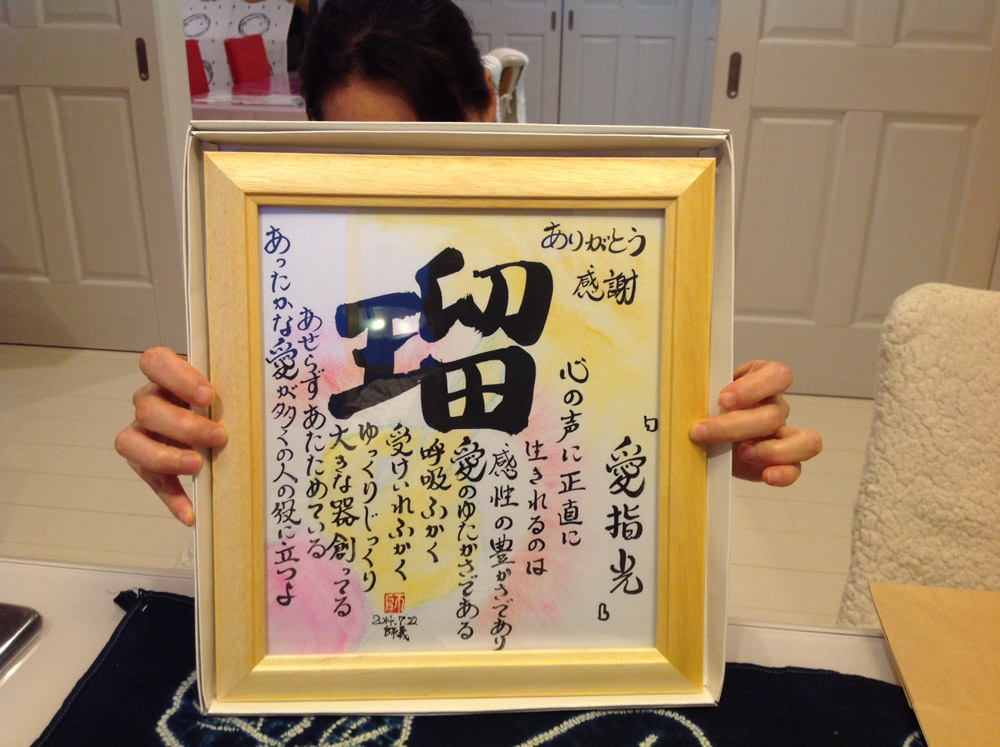 ありがとう
感謝
「愛指光」
瑠
心の声に正直に
生きれるのは
感性の豊かさであり
愛のゆたかさである
呼吸ふかく
受けいれふかく
ゆっくりじっくり
大きな器創ってる
あせらずあたためている
あったかな愛が多くの人の役に立つよ
2014.7.22
師義